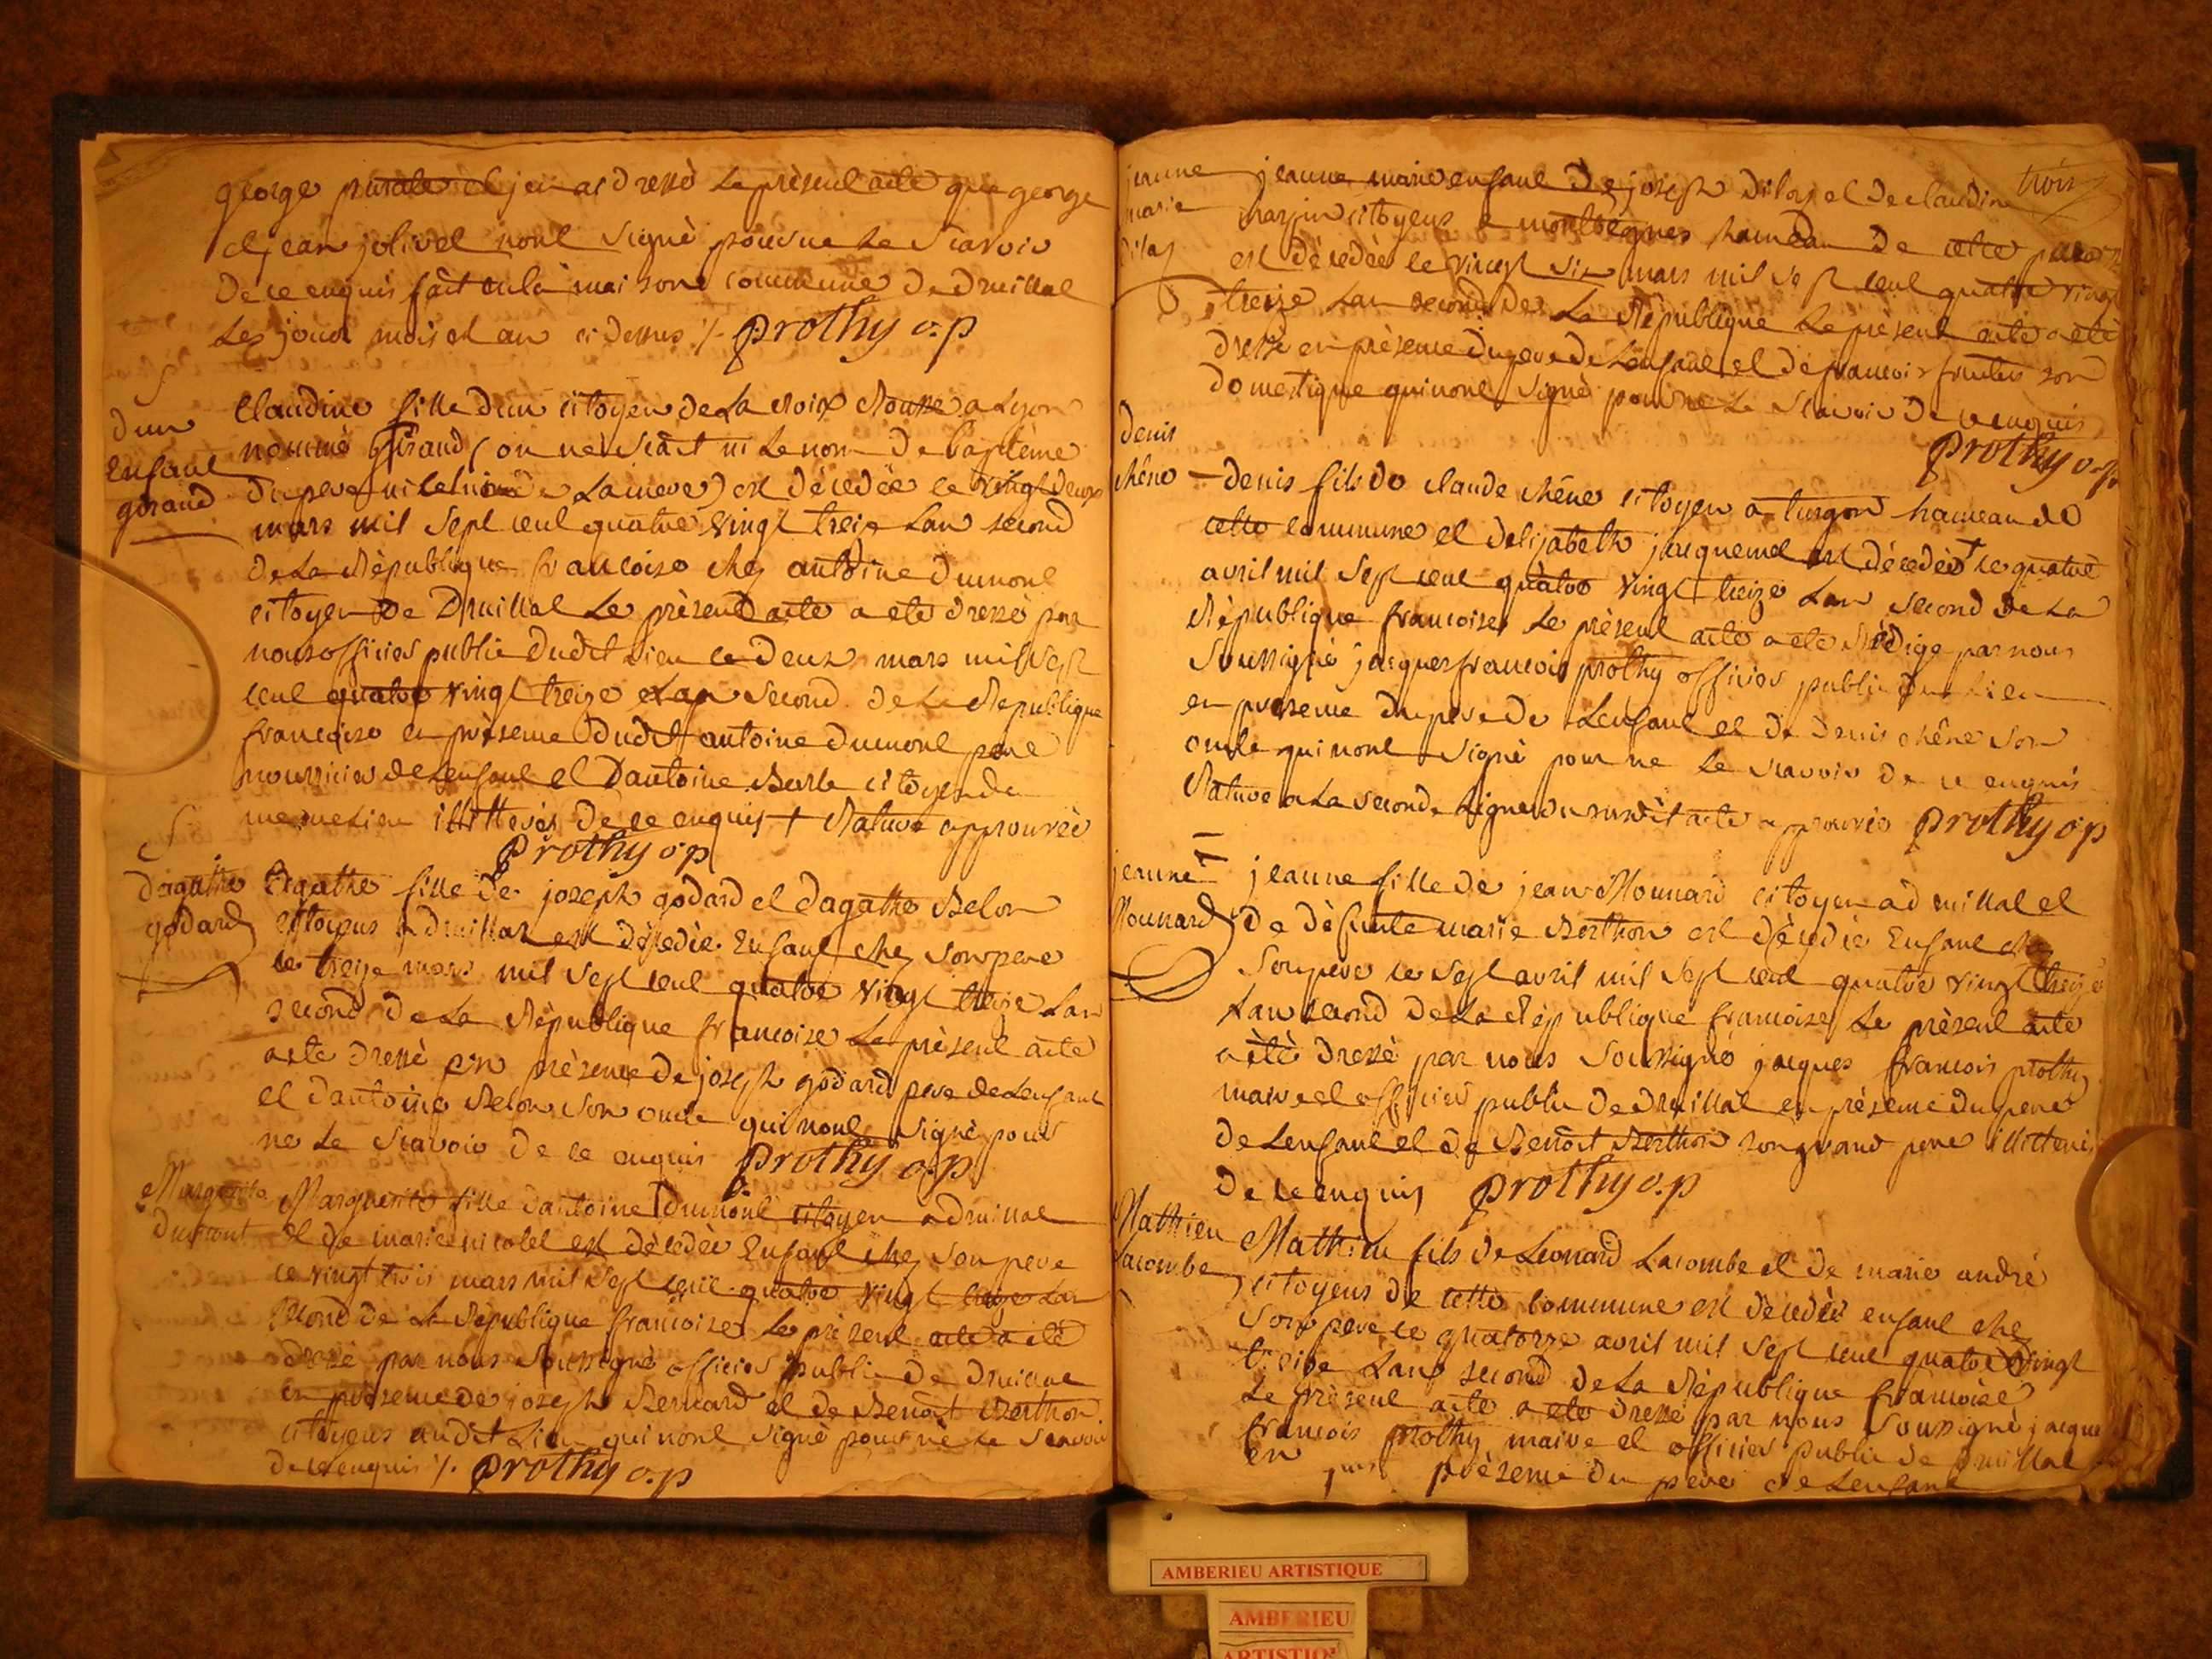 george et jen ai dressé le présent acte que george
et jean jolivet nont signé pour ne le scavoir
de ce enquis fait en la maison commune de druillat
les jour mois et an ci dessus /. prothy o.p
dun
Enfant
girand
Claudine fille dun citoyen de la Croix Rousse a Lyon
nommé Girand (on ne scait ni le nom de baptème
du pere ni celui de la mere) est décédée le vingt deux
mars mil sept cent quatre vingt treize lan second
de la République francoise chez antoine dumont
citoyen de Druillat le présent acte a ete dressé par
nous officier public dudit lieu le deux mars mil sept
cent quatre vingt treize et lan second de la Republique
francoise en présence dudit antoine dumont pere
nourricier de lenfant et dantoine citoyen du
meme lieu illitterés de ce enquis + Rature approuvée
prothy o.p
dagathe
godard
Agathe fille de joseph godard et dagathe Belon
citoyens a druillat est décédée Enfant chez son pere
le treize mars mil sept cent quatre vingt treize lan
second de la République francoise le présent acte
a ete dressé en présence de joseph godard pere de lenfant
et dantoine Belon son oncle qui nont signé pour
ne le scavoir de ce enquis prothy o.p
Marguerite
Dumont
Marguerite fille dantoine Dumont citoyen a druillat
et de marie nicolet est décédée Enfant chez son pere
le vingt trois mars mil sept cent quatre vingt treize lan
second de la République francoise le présent acte a été
dressé par nous soussigné officier public de druillat
en présence de joseph Bernard et de Benoit Berthon
citoyens audit lieu qui nont signé pour ne le scavoir
de ce enquis /. prothy o.p
trois
jeanne
marie
jeanne marie enfant de joseph et de claudine
citoyens a hameau de cette
est décédée le vingt six mars mil sept cent quatre vingt
treize lan second de la République le présent acte a été
dressé en présence du pere de lenfant et de francois son
domestique qui nont signé pour ne le scavoir de ce enquis
prothy o.p
denis
chêne
denis fils de claude chêne citoyen a turgon hameau de
cette commune et delizabeth jacquemet est décédé le quatre
avril mil sept cent quatre vingt treize lan second de la
République francoise le présent acte a ete rédigé par nous
soussigné jacques francois prothy officier public du lieu
en présence du pere de lenfant et de denis chêne son
oncle qui nont signé pour ne le scavoir de ce enquis
Rature a la seconde ligne du susdit acte approuvée prothy o.p
jeanne
Mounard
jeanne fille de jean Mounard citoyen a druillat et
de défunte marie Berthon est décédée Enfant chez
son pere le sept avril mil sept cent quatre vingt treize
lan second de la République francoise le présent acte
a été dressé par nous soussigné jacques francois prothy
maire et officier public de druillat en présence du pere
de lenfant et de Benoit Berthon son grand pere illitteré
de ce enquis prothy o.p
Mathieu
Lacombe
Mathieu fils de Leonard Lacombe et de marie andré
citoyens de cette commune est décédé enfant chez
son pere le quatorze avril mil sept cent quatre vingt
treize lan second de la République francoise
le présent acte a ete dressé par nous soussigné jacque
francois prothy maire et officier public de druillat
en présence du pere de lenfant
AMBERIEU ARTISTIQUE
AMBERIEU
ARTISTIQ